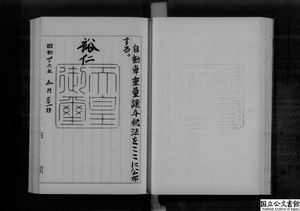 自動車重量譲与税法をここに公布
する。
裕仁
天皇
御璽
昭和四十六年五月三十一日
国立公文書館
National Archives of Japan